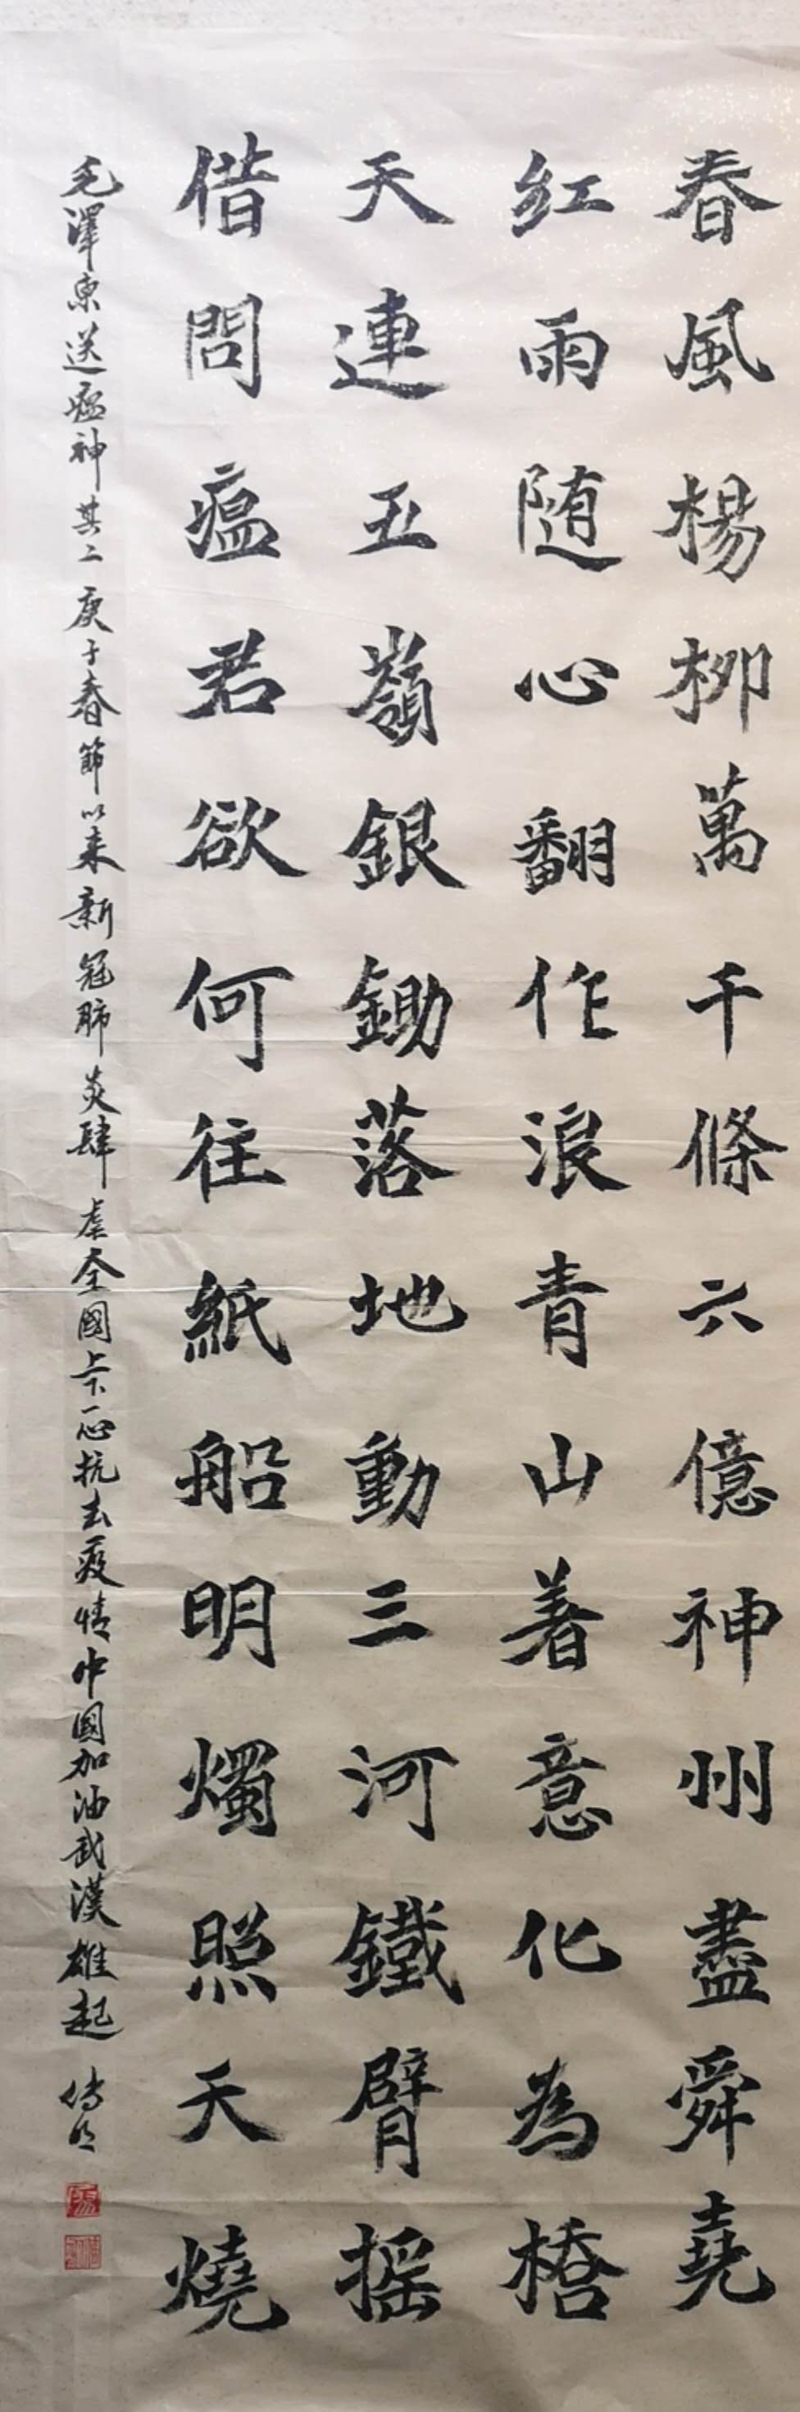 春風楊柳萬千條六億神州盡舜堯
红雨随心翻作浪青山著意化為橋
天連五嶺銀鋤落地動三河鐵臂摇
借問瘟君欲何往紙船明燭照天燒
毛澤東送瘟神其二庚子春節以来新冠肺炎肆虐全國上下一心抗击疫情中國加油武漢雄起